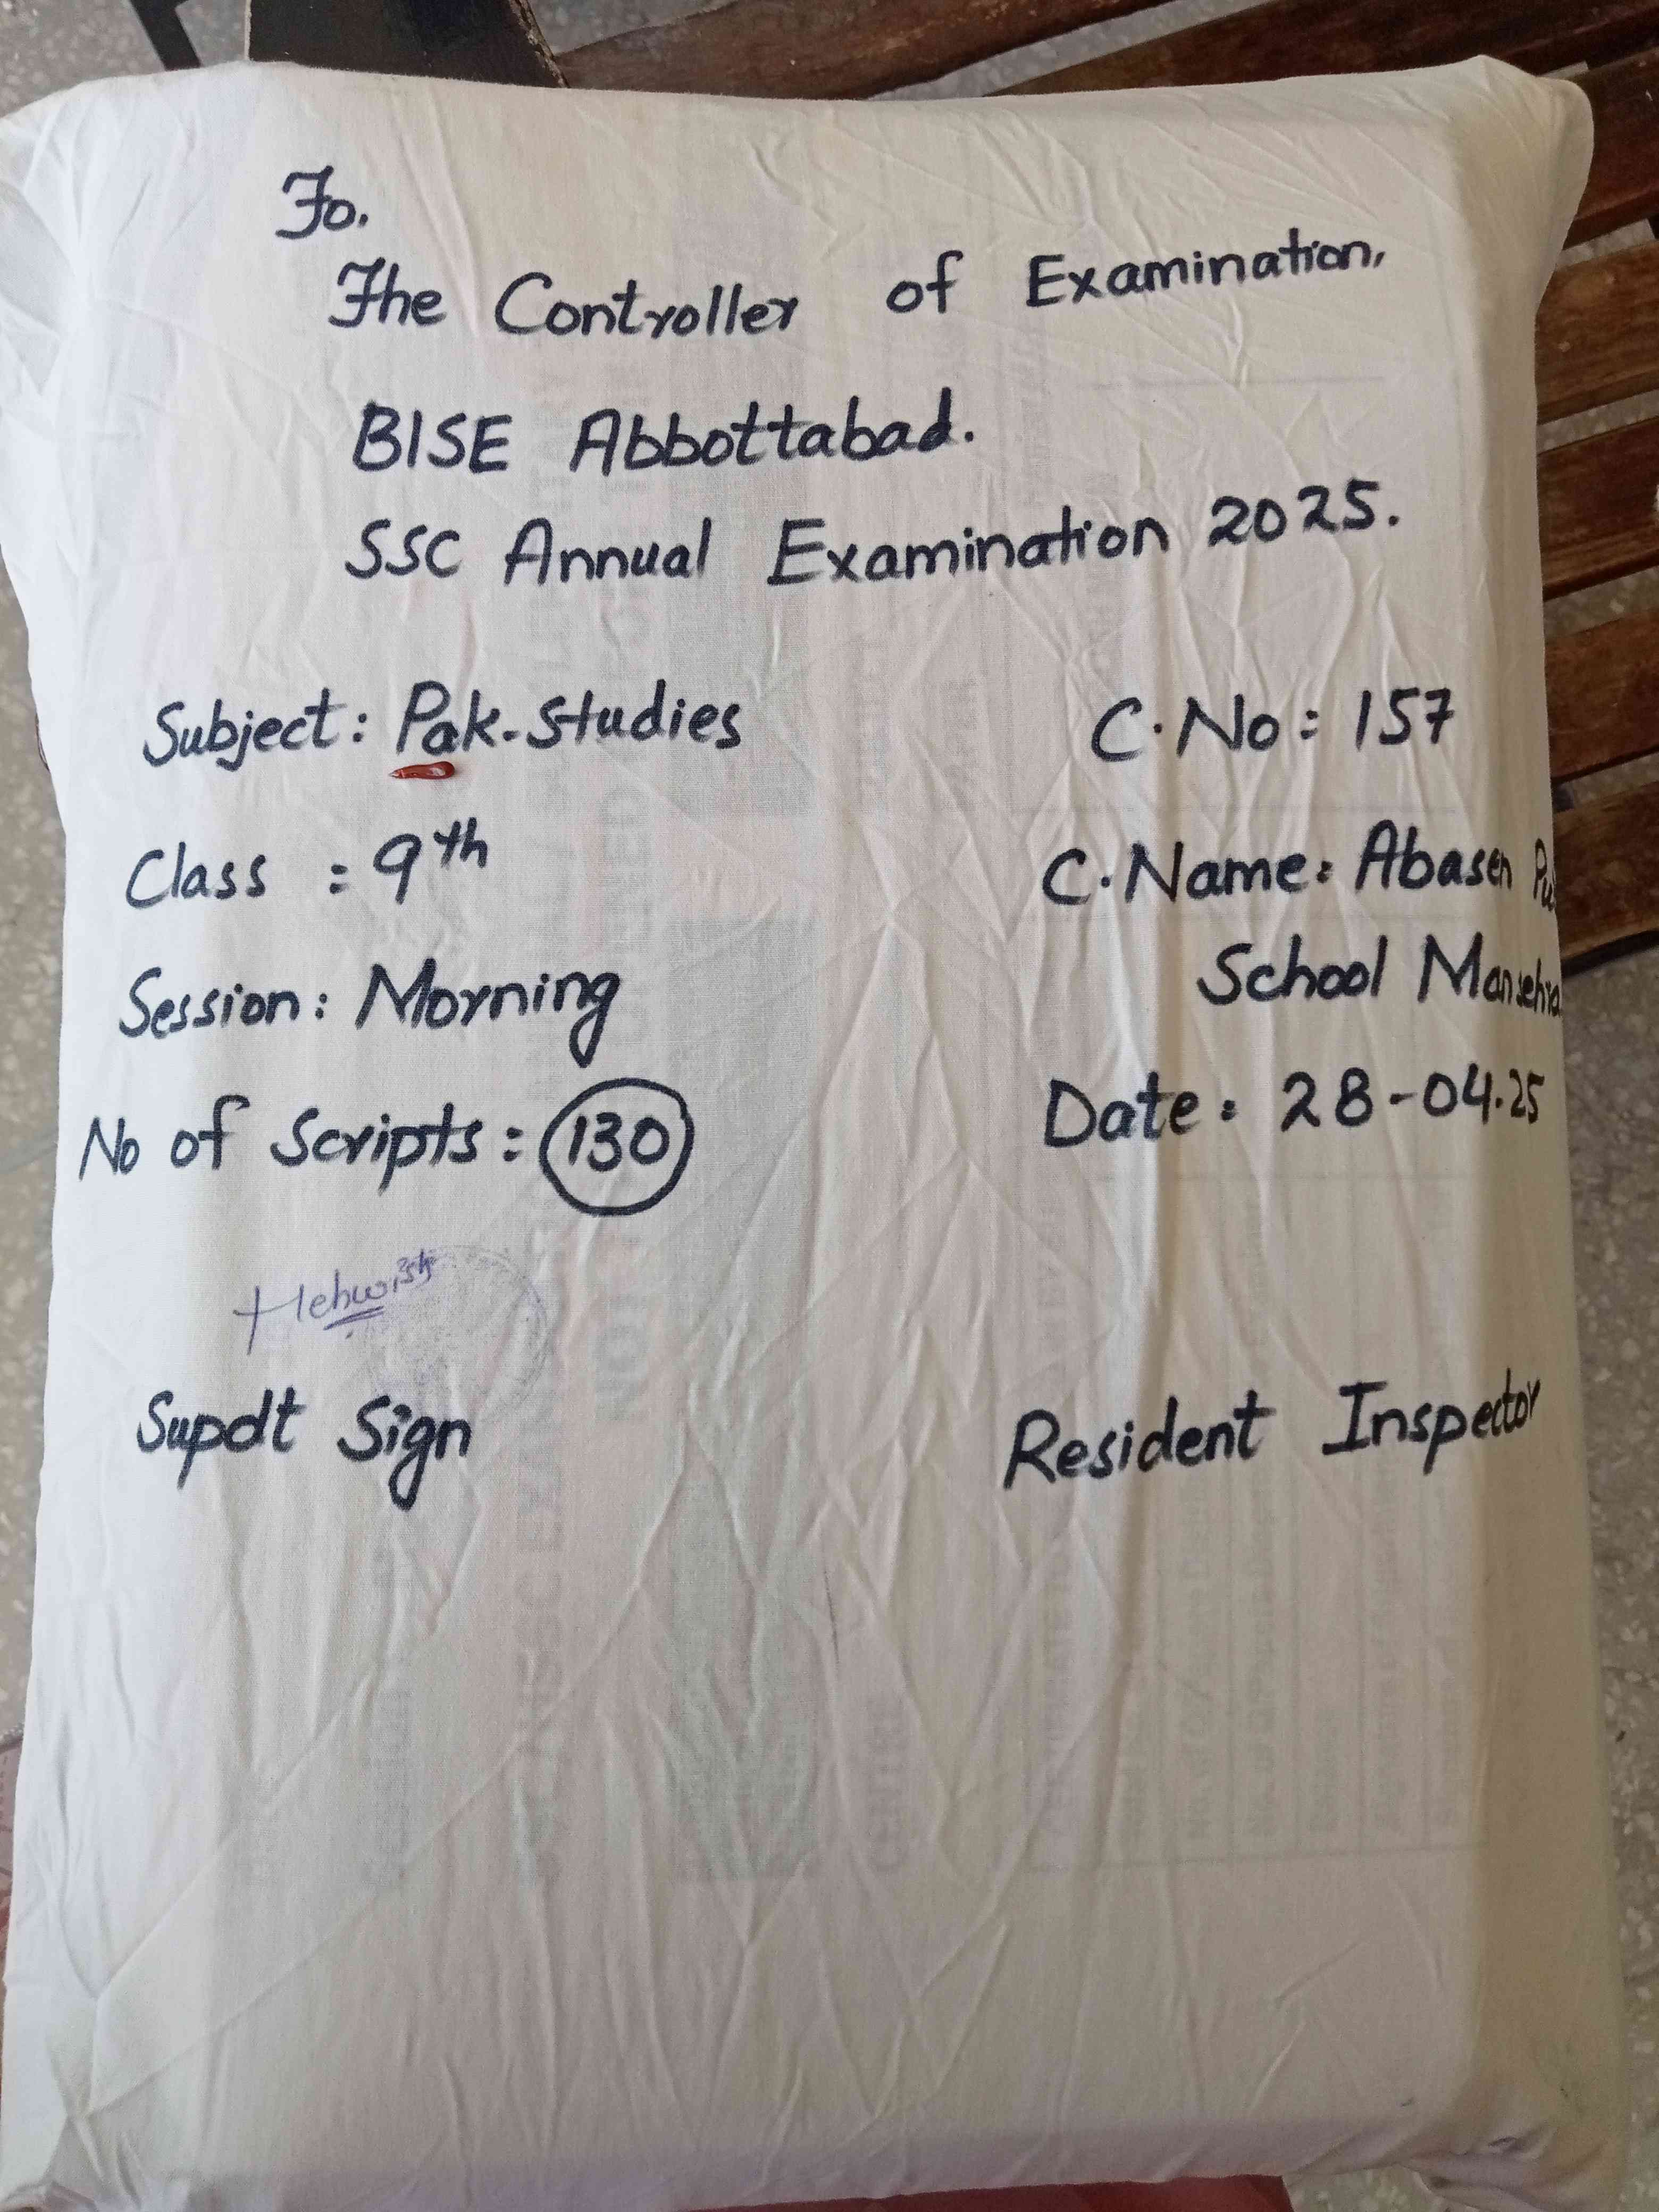 To.
The Controller of Examination,
BISE Abbottabad.
SSC Annual Examination 2025.
Subject: Pak-Studies
C.No: 157
Class : 9th
C.Name: Abasen
School Mansehra
Session: Morning
No of Scripts: 130
Date: 28-04-25
Supdt Sign
Resident Inspector